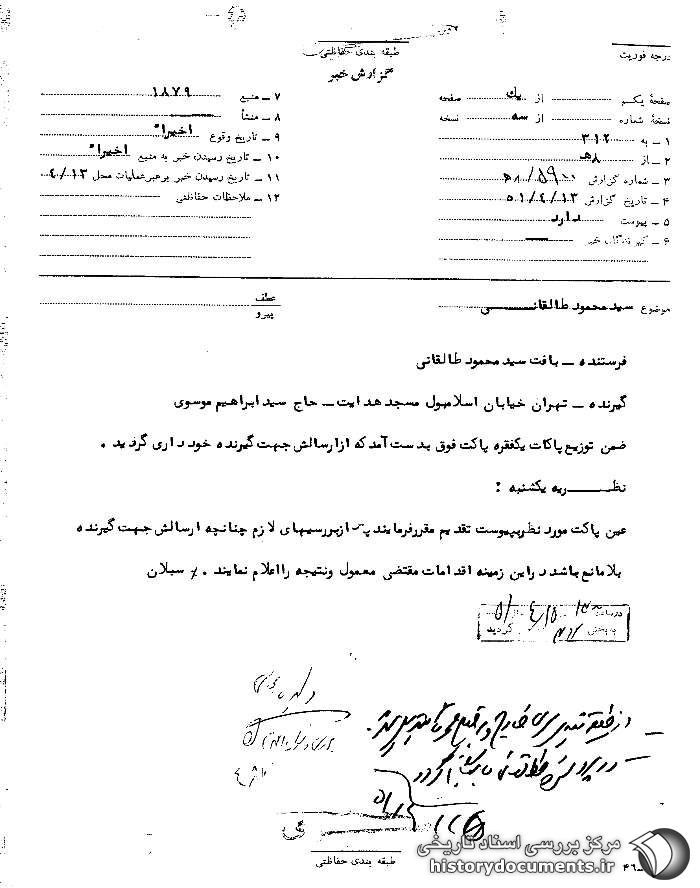 درجه فوریت
طبقه بندی حفاظتی
گزارش خبر
صفحهٔ یکم از یک صفحه
نسخهٔ شماره از سه نسخه
۱ ـ به ۳۱۲
۲ ـ از ۸ه‍
۳ ـ شماره گزارش ۵۹۰۰/۸ه‍
۴ ـ تاریخ گزارش ۵۱/۴/۱۳
۵ ـ پیوست دارد
۶ ـ گیرندگان خبر
۷ ـ منبع ۱۸۷۹
۸ ـ منشأ
۹ ـ تاریخ وقوع اخیرا"
۱۰ ـ تاریخ رسیدن خبر به منبع اخیرا"
۱۱ ـ تاریخ رسیدن خبر برهبر عملیات محل ۴/۱۳
۱۲ ـ ملاحظات حفاظتی
موضوع سید محمود طالقانـــــی
عطف
پیرو
فرستنده ـ بافت سید محمود طالقانی
گیرنده ـ تهران خیابان اسلامبول مسجد هدایت ـ حاج سید ابراهیم موسوی
ضمن توزیع پاکات یکفقره پاکت فوق بدست آمد که از ارسالش جهت گیرنده خود داری گردید .
نظـــــریه یکشنبه :
عین پاکت مورد نظر بپیوست تقدیم مقرر فرمایند پس از بررسیهای لازم چنانچه ارسالش جهت گیرنده
بلامانع باشد در این زمینه اقدامات مقتضی معمول ونتیجه را اعلام نمایند . ٪ سبلان
به بخش ۳۱۲ گردید
طبقه بندی حفاظتی
مرکز بررسی اسناد تاریخی
historydocuments.ir